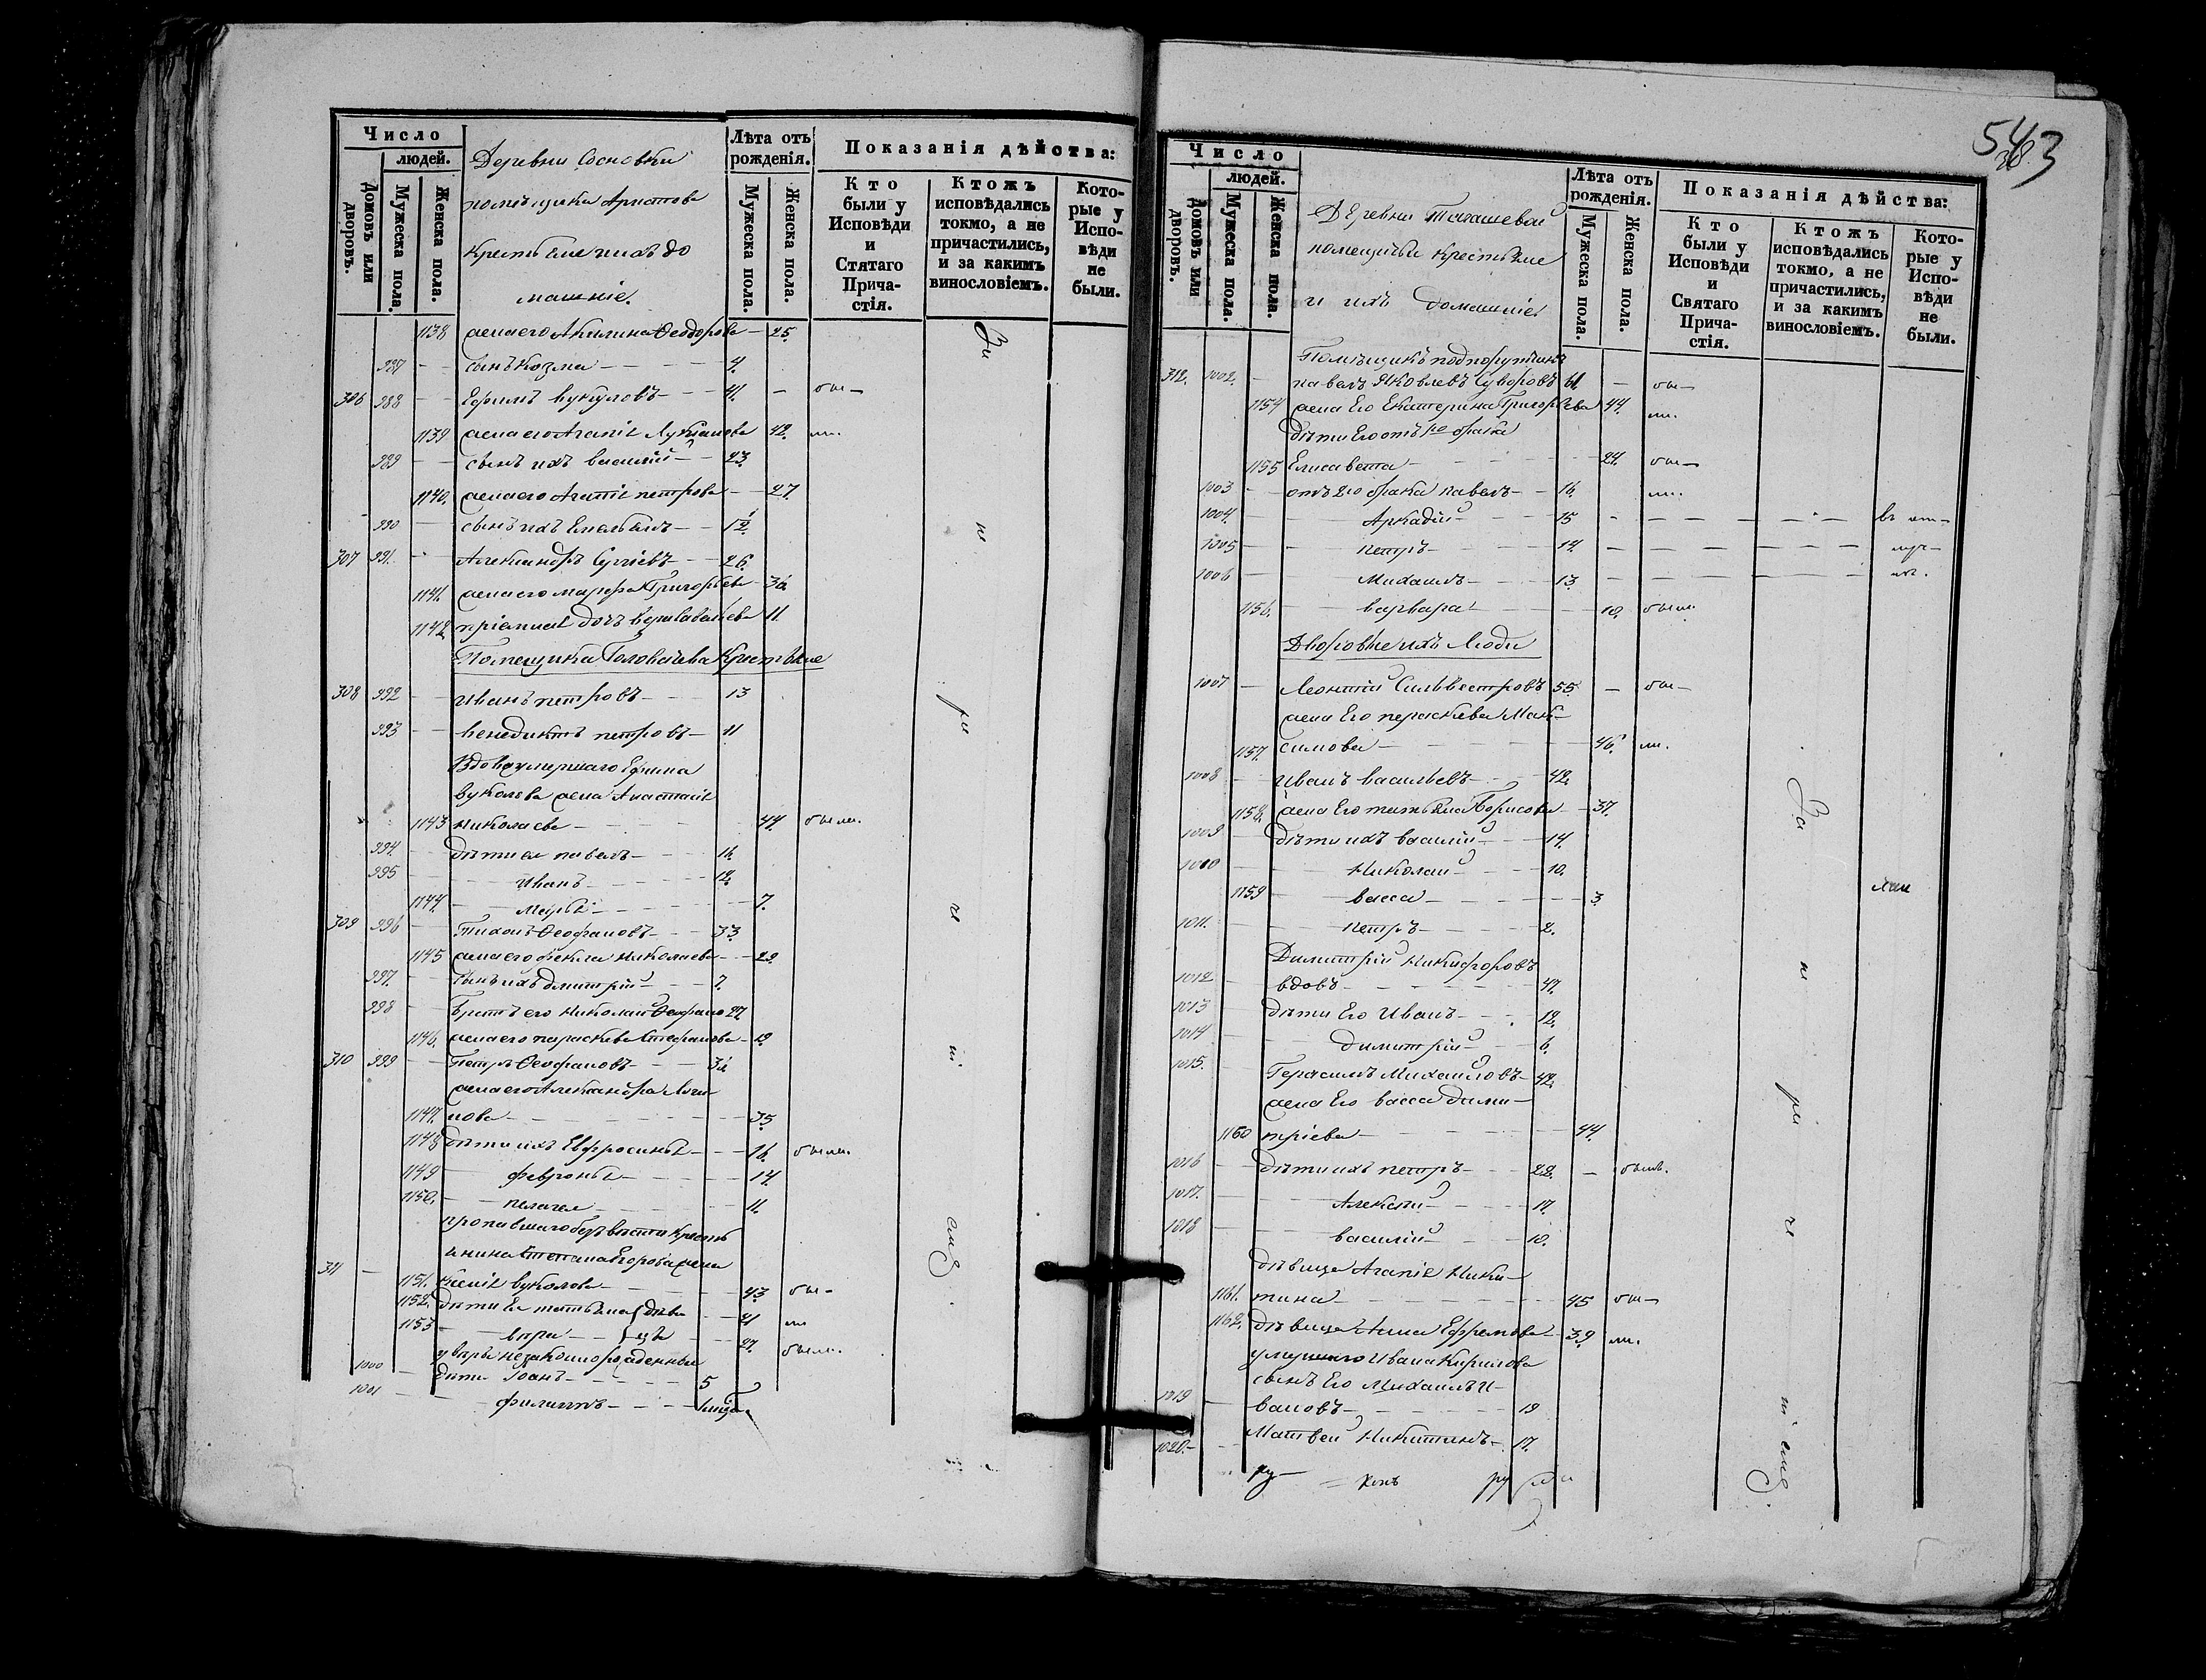 Число
людей.
Домовъ или дворовъ.
Мужеска пола.
Женска пола.
Деревни Сосновки
помѣщика Аристова
крестьяне и ихъ до
машніе.
Лѣта отъ рожденія.
Мужеска пола.
Женска пола.
Показанія дѣйства:
Кто были у Исповѣди и Стятаго Причастія.
Ктожъ исповѣдались токмо, а не причастились, и за какимъ винословіемъ.
Которые у Исповѣди не были.
1138 жена его Акилина Феодорова — 25.
987 — сынъ Козма — 4.
306 988 — Ефимъ Вукуловъ — 41. — бы—
1139 жена его Агапія Лукіанова 42. ли.
989 — сынъ ихъ Василій — 23.
1140. жена его Агапія Петрова — 27
990 — сынъ ихъ Емельянъ — 1/2.
307 991. — Александръ Сергіевъ — 26.
1141. жена его Марфа Григорьева —
1142 дочь 11.
Помещика Головачева Крестьяне
308 992 — Иванъ Петровъ — 13
993 — Венедиктъ Петровъ — 11
Вдова умершаго Ефима
Вуколова жена Анастасія
1143 Николаева — 44. были.
994. — дѣти ея Павелъ — 16.
995 — Иванъ — 12.
1144. — Марья — 7.
309 996 — Тихонъ Феофановъ — 33.
1145 жена его Фекла Николаева — 29.
997. — сынъ ихъ Дмитрій — 7.
998 — братъ его Николай Феофано 27.
1146. жена его Параскева Стефанова — 19.
310 999 — Петръ Феофановъ —
жена его Александра Логи
1147. нова — 35.
1148 дѣти ихъ Евфросинья — 16. были.
1149 — Февронья — 14.
1150. — Пелагея — 11.
пропавшаго безъ вѣсти кресть
янина Степана Егорова жена
311 — 1151. Ксенія Вуколова — 43. бы—
1152. дѣти Ея Татьяна дѣви 21 ли
1153 — Вѣра — цы 27. были.
у Вѣры незаконнорожденные
1000 дѣти Іоанъ — 5
1001 — Филиппъ —
За
н
ри
ч
т.
ем8
543
Число
людей.
Домовъ или дворовъ.
Мужеска пола.
Женска пола.
Деревни Талашевой
помещичьи крестьяне
и ихъ домашніе
Лѣта отъ рожденія.
Мужеска пола.
Женска пола.
Показанія дѣйства:
Кто были у Исповѣди и Святаго Причастія.
Ктожъ исповѣдались токмо, а не причастились, и за какимъ винословіемъ.
Которые у Исповѣди не были.
Помѣщикъ подпорутчикъ
312. 1002. — Павелъ Яковлевъ Суворовъ 61. — бы—
1154 жена Его Екатерина Григорьева 44. ли.
дѣти Его отъ 1го брака
1155 Елисавета — 24. бы—
1003 — отъ 2го брака Павелъ — 16. ли.
1004. — Аркадій — 15 —
1005 — Петръ — 14. —
1006 — Михаилъ — 13. —
1156. — Варвара — 10. были
Дворовые ихъ Люди
1007 — Леонтій Сильвестровъ 55. — бы—
жена Его Пераскева Мак—
1157. симова — 46. ли.
1008 — Иванъ Васильевъ — 42.
1158. жена Его Татьяна Борисова — 37.
1009 — дѣти ихъ Василій — 14.
1010 — Николай — 10.
1159 — Васса — 3.
1011. — Петръ — 2.
Димитрій Никифоровъ
1012 — вдовъ — 47.
1013 — дѣти Его Иванъ — 12.
1014 — Димитрій — 6.
1015. — Герасимъ Михайловъ — 42.
жена Его Васса Дими—
1160 тріева — 44.
1016 — дѣти ихъ Петръ — 22. — былъ.
1017. — Алексѣй — 17.
1018 — Василій — 10.
дѣвица Агапія Ники—
1161. тина — 45 бы—
1162. дѣвица Анна Ефремова — 39 ли.
умершаго Ивана Кирилова
сынъ Его Михаилъ И—
1019 — вановъ — 19
1020. — Матвей Никитинъ — 17.
За
н
ри
ч
т. ем8.